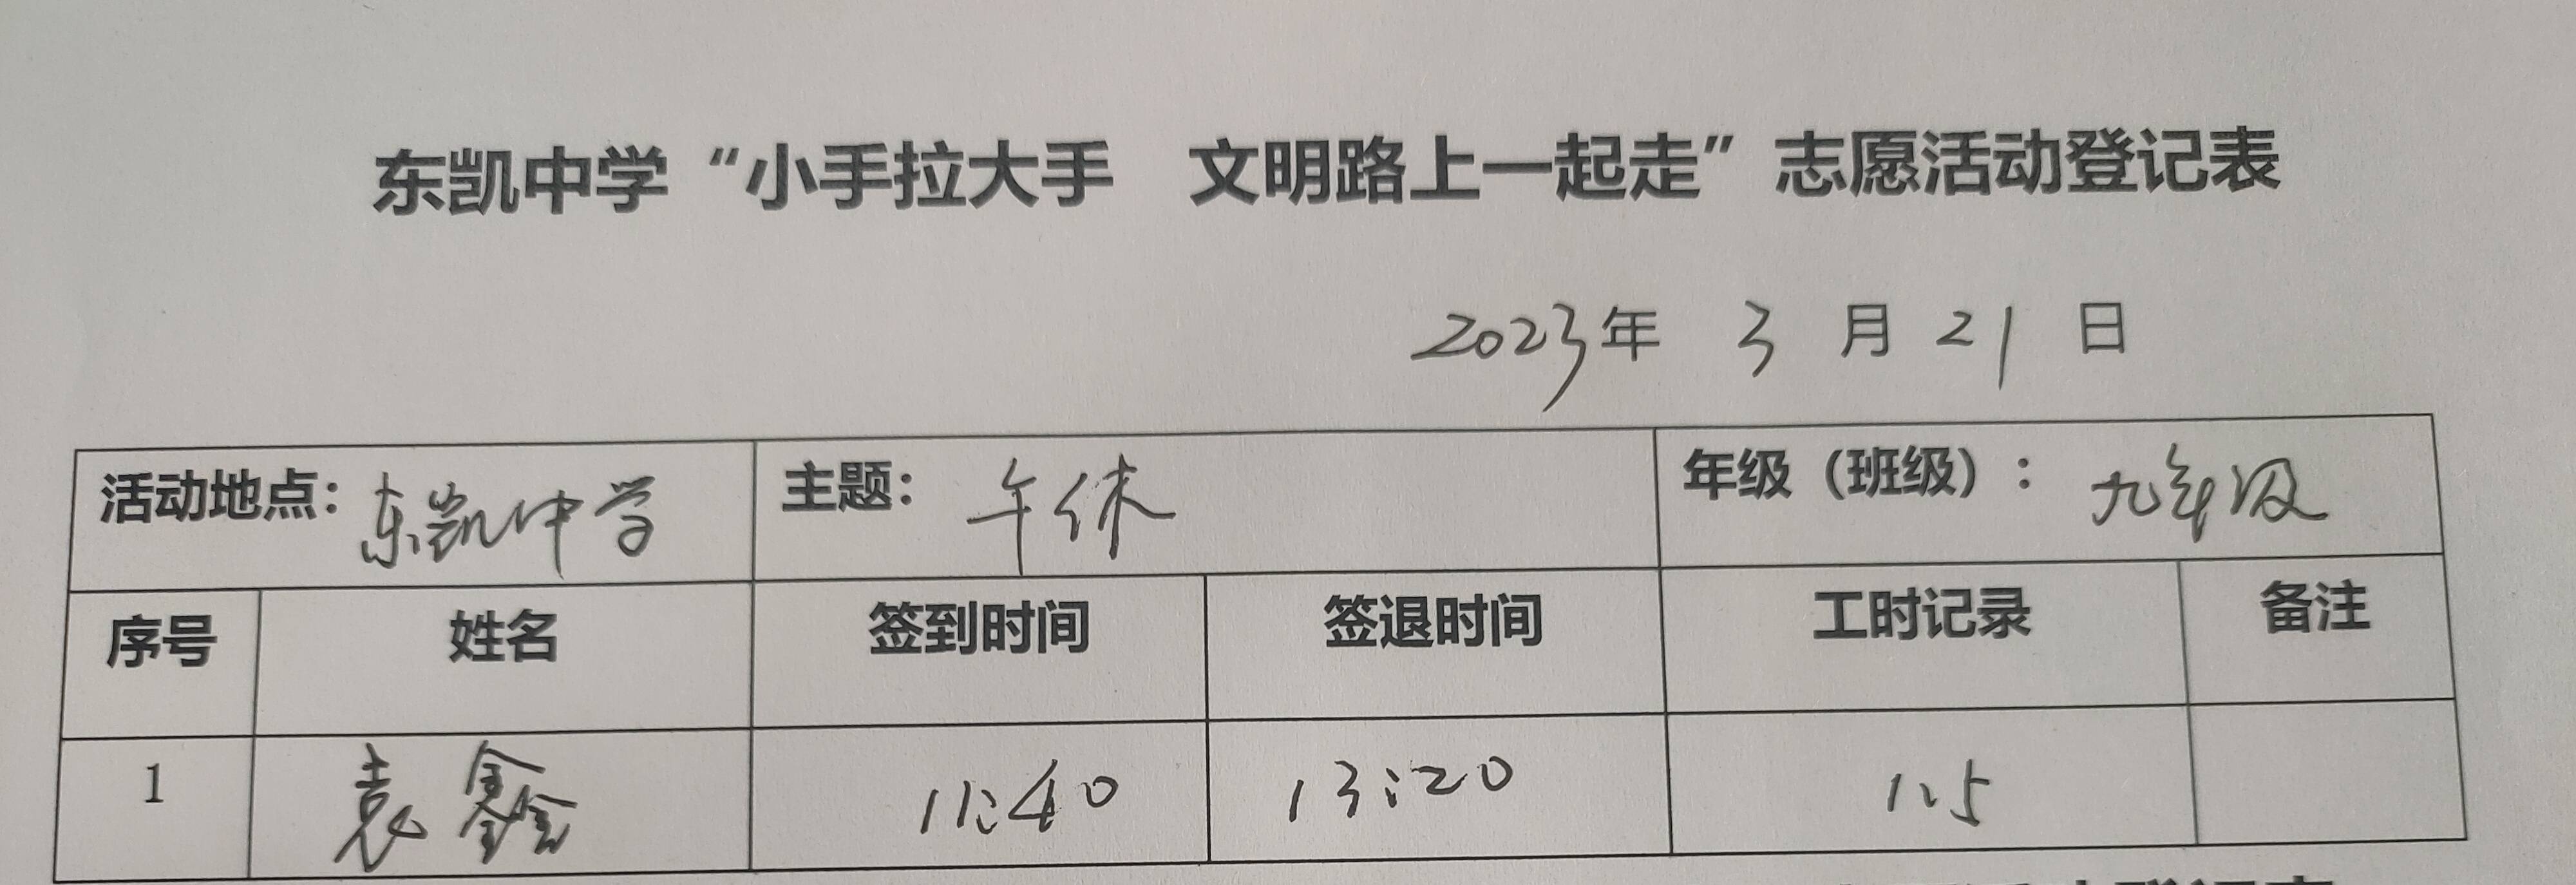 东凯中学“小手拉大手　文明路上一起走”志愿活动登记表
2023年 3 月 21 日
活动地点：东凯中学 主题：午休 年级（班级）：九年级
序号 姓名 签到时间 签退时间 工时记录 备注
1 袁鑫 11:40 13:20 1.5